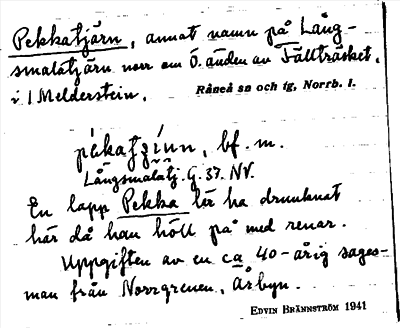 Pekkatjärn, annat namn på Lång-
smalatjärn norr om Ö. änden av Fällträsket,
i 1 Melderstein.
Råneå sn och tg, Norrb. l.
bf. m.
Långsmalatj. G. 37. NV.
En lapp Pekka lär ha drunknat
här då han höll på med renar.
Uppgiften av en ca 40-årig sages-
man från Norrgrenen, Årbyn.
EDVIN BRÄNNSTRÖM 1941